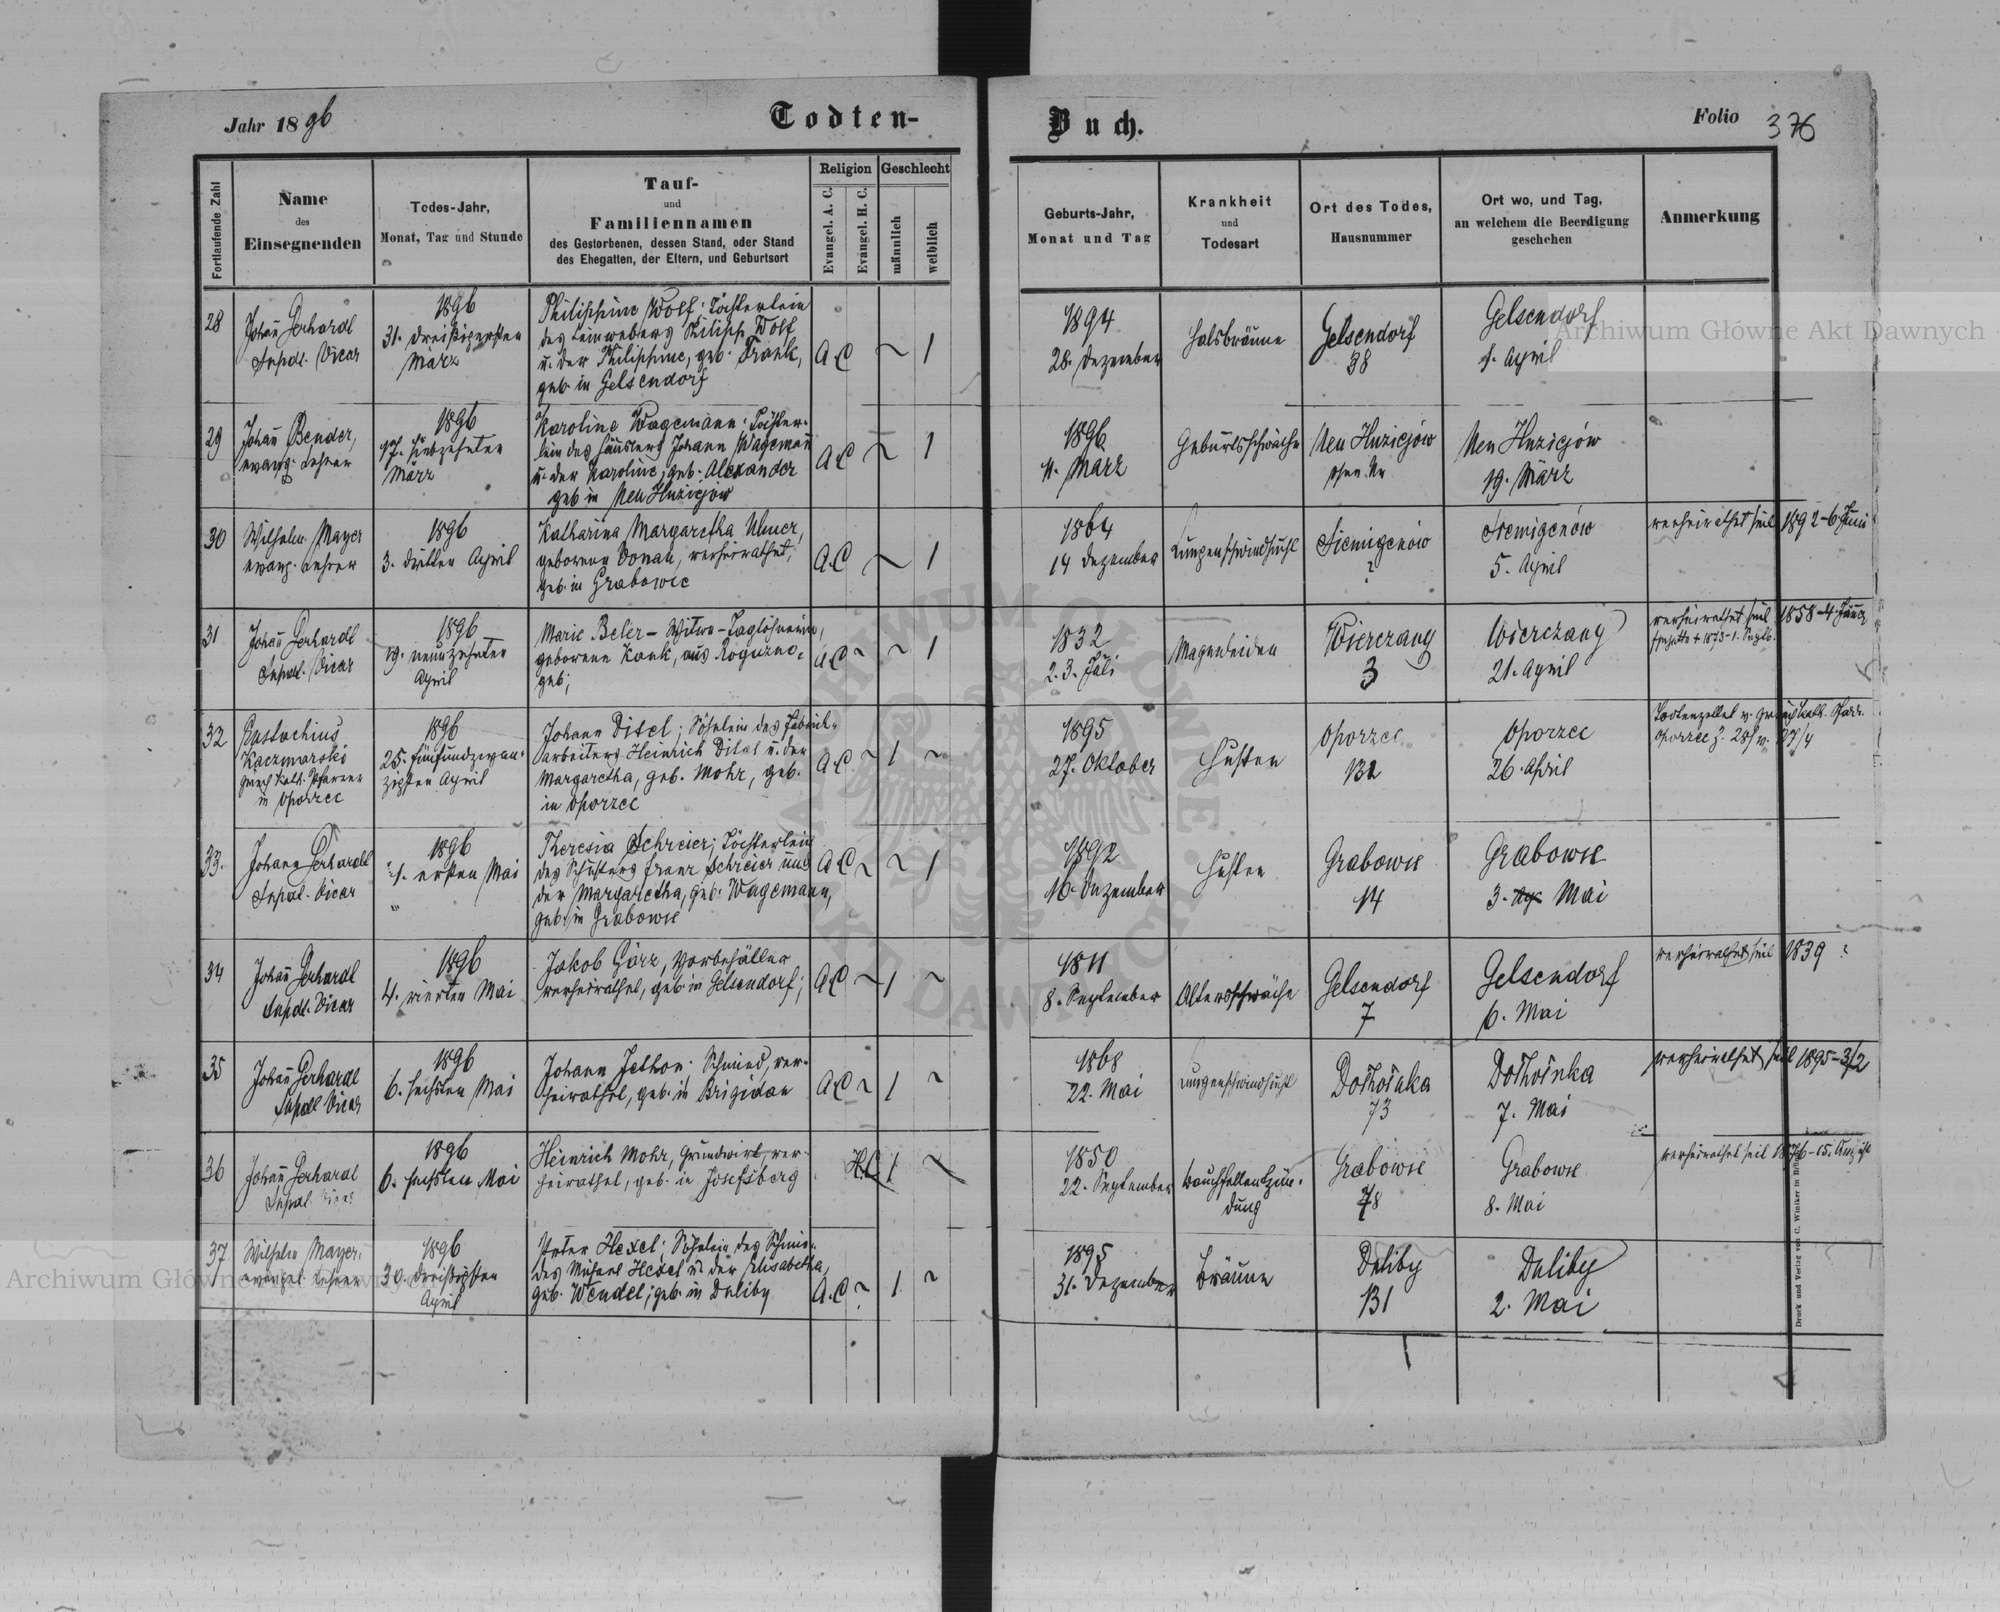 Jahr 1896
Todten-
Buch.
Folio 376
Fortlaufende Zahl
Name
des
Einsegnenden
Todes-Jahr,
Monat, Tag und Stunde
Tauf-
und
Familiennamen
des Gestorbenen, dessen Stand, oder Stand
des Ehegatten, der Eltern, und Geburtsort
Religion
Evangel. A. C.
Evangel. H. C.
Geschlecht
männlich
weiblich
Geburts-Jahr,
Monat und Tag
Krankheit
und
Todesart
Ort des Todes,
Hausnummer
Ort wo, und Tag,
an welchem die Beerdigung
geschehen
Anmerkung
28
Johann Gerhardt
Vicar
1896
31. dreißigersten
März
Philippine Wolf; Töchterlein
des Leinwebers Philipp Wolf
u. der Philippine, geb. Frank,
geb. in Gelsendorf
A.C
~
1
1894
28. Dezember
Halsbräune
Gelsendorf
38
Gelsendorf
1. April
29
Johann Bender,
evang. Lehrer
1896
17. siebzehnten
März
Karoline Wagemann; Töchter-
lein des Häuslers Johann Wageman
u. der Karoline, geb. Alexander
geb in Neu Hnizejow
A C
~
1
1896
11. März
Geburtsschwäche
Neu Hnizicjów
ohne Nr
Neu Hnizicjów
19. März
30
Wilhelm Mayer
evang. Lehrer
1896
3. dritten April
Katharina Margaretha Ulmer,
geborene Donah, verheirathet,
geb. in Grabowce
A.C
~
1
1864
14 Dezember
Lungenschwindsucht
Siemigenów
?
Siemigenów
5. April
verheirathet seit 1892-6 Juni
31
Johann Gerhardt
Vicar
1896
19. neunzehnten
April
Marie Beler - Witwe - Taglöhnerin,
geborene Konk, aus Roguzno,
geb;
A C
~
~
1
1832
2.3. Juli
Magenleiden
Wierczany
3
Wierczany
21. April
verheirathet seit 1858-4. Jänner
32
Eustachius
Kaczmarski
griech kath. Pfarrer
in Oporzec
1896
25. fünfundzwan-
zigsten April
Johann Ditel; Söhnlein des Fabrick-
arbeiters Heinrich Ditel u. der
Margaretha, geb. Mohr, geb.
in Oporzec
A C
~
1
~
1895
27. Oktober
Husten
Oporzec
132
Oporzec
26. April
Todtenzettel v. griech kath. Pfarr.
Oporzec
33.
Johann Gerhardt
Vicar
1896
1. ersten Mai
"
Theresia Schreier; Töchterlein
des Schusters Franz Schreier und
der Margaretha, geb. Wagemann,
geb. in Grabowce
A C
~
~
1
1892
16. Dezember
Husten
Grabowce
14
Grabowce
3. Mai
34
Johann Gerhardt
Vicar
1896
4. vierten Mai
Jakob Görz, Vorbehälter
verheirathet, geb. in Gelsendorf;
A C
~
1
~
1811
8. September
Altersschwäche
Gelsendorf
7
Gelsendorf
6. Mai
verheirathet seit 1839 ?
35
Johann Gerhardt
Vicar
1896
6. sechsten Mai
Johann Jethon; Schmied, ver-
heirathet, geb. in Brigidau
A C
~
1
~
1868
22. Mai
Lungenschwindsucht
73
7. Mai
verheirathet seit 1895-3/2
36
Johann Gerhardt
Vicar
1896
6. sechsten Mai
Heinrich Mohr, Grundwirt, ver-
heirathet, geb. in Josefsberg
H.C
1
~
1850
22. September
Bauchfellentzün-
dung
Grabowce
Grabowce
8. Mai
verheirathet seit 1876-15. August
37
Wilhelm Mayer,
evangel. Lehrer
1896
30. dreißigsten
April
Peter Hexel; Söhnlein des Schmie-
des Michael Hexel u der Elisabetha,
geb. Wendel; geb. in Duliby
A.C
~
1
~
1895
31. Dezember
Bräune
Duliby
131
Duliby
2. Mai
Archiwum Główne Akt Dawnych
Archiwum Główne Akt Dawnych
ARCHIWUM GŁÓWNE AKT DAWNYCH